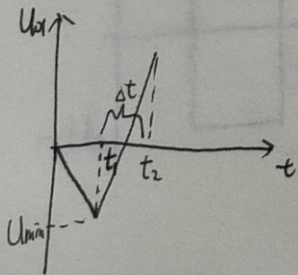 U₀₁
Δt
t₁ t₂
t
Umin